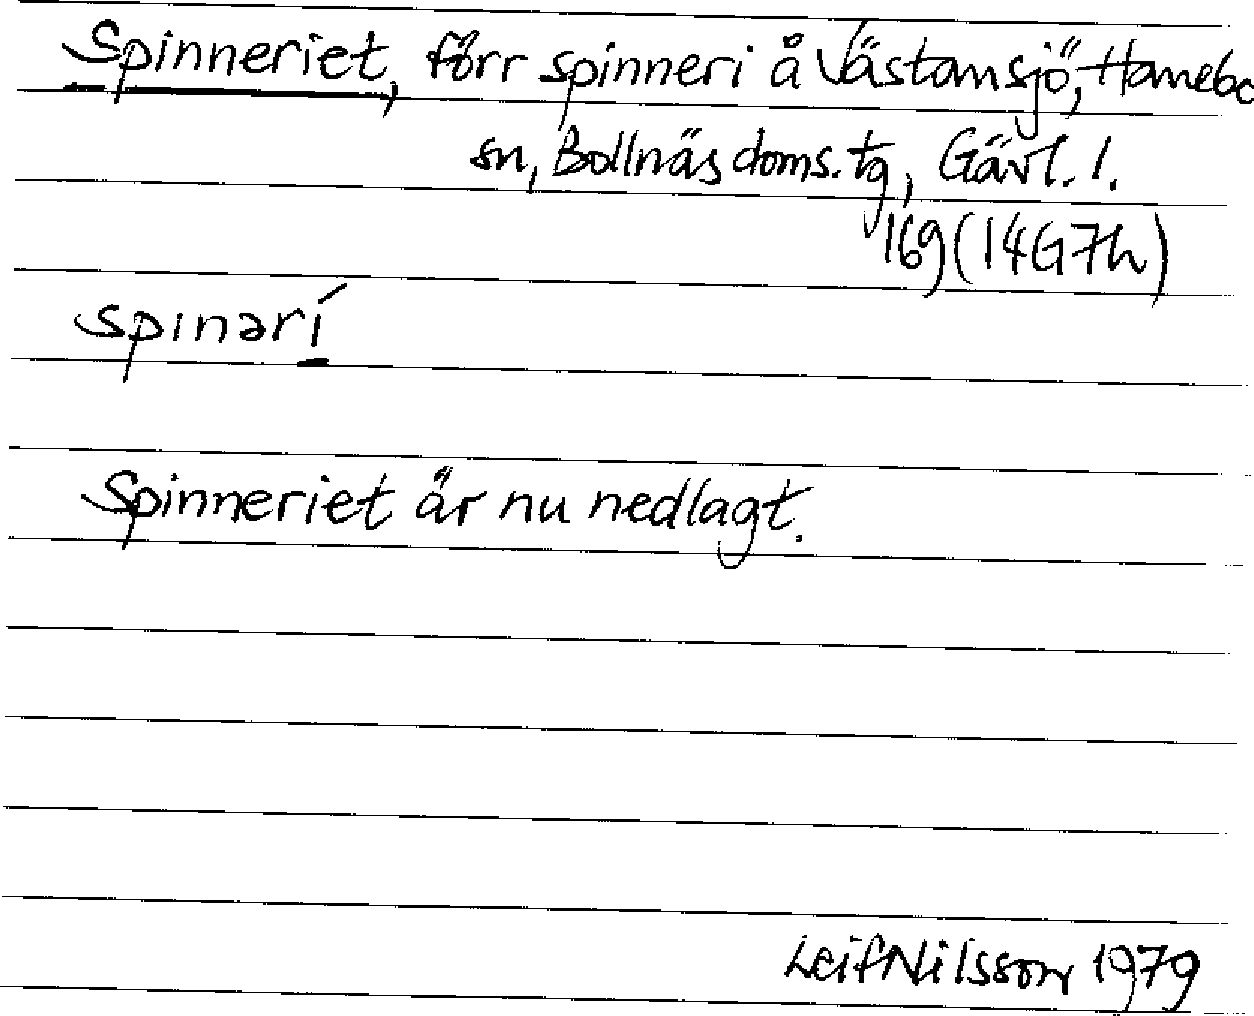 Spinneriet, förr spinneri å Västansjö, Hanebo
sn, Bollnäs doms. tg, Gävl. l.
16g (14G7h)
spinərí
Spinneriet är nu nedlagt.
Leif Nilsson 1979